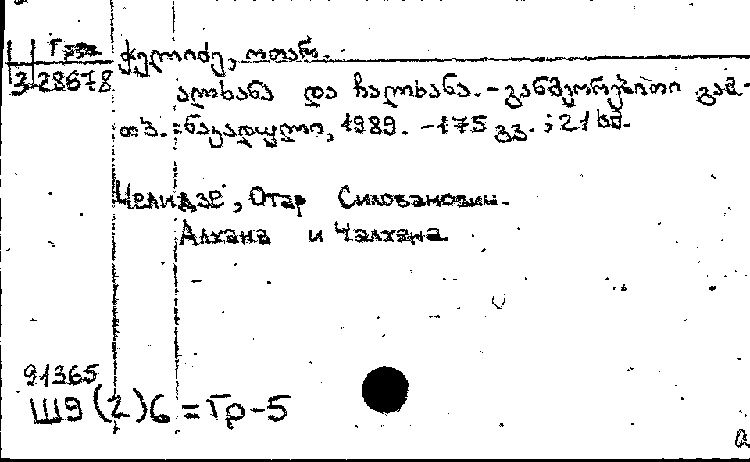 Груз
ჭელიძე, ოთარ.
3-28678
ალხანა და ჩალხანა. - განმეორებითი გამ-
თბ.: ნაკადული, 1989. - 175 გვ.; 21 სმ.
Челидзе, Отар Силованович.
Алхана и Чалхана
91365
Ш9(2)6=Гр-5